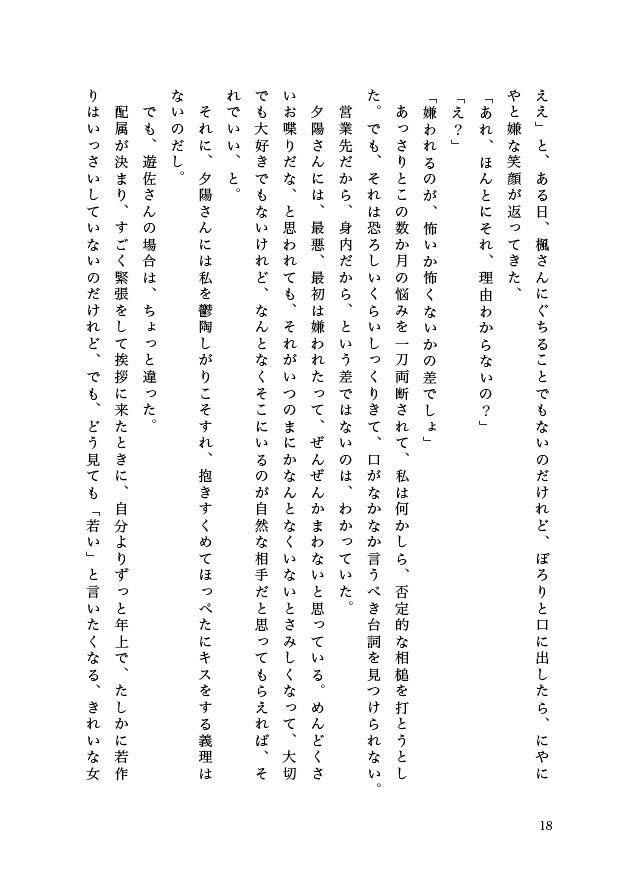 ええ」と、ある日、楓さんにぐちることでもないのだけれど、ぽろりと口に出したら、にやに
やと嫌な笑顔が返ってきた、
「あれ、ほんとにそれ、理由わからないの？」
「え？」
「嫌われるのが、怖いか怖くないかの差でしょ」
あっさりとこの数か月の悩みを一刀両断されて、私は何かしら、否定的な相槌を打とうとし
た。でも、それは恐ろしいくらいしっくりきて、口がなかなか言うべき台詞を見つけられない。
営業先だから、身内だから、という差ではないのは、わかっていた。
夕陽さんには、最悪、最初は嫌われたって、ぜんぜんかまわないと思っている。めんどくさ
いお喋りだな、と思われても、それがいつのまにかなんとなくいないとさみしくなって、大切
でも大好きでもないけれど、なんとなくそこにいるのが自然な相手だと思ってもらえれば、そ
れでいい、と。
それに、夕陽さんには私を鬱陶しがりこそすれ、抱きすくめてほっぺたにキスをする義理は
ないのだし。
でも、遊佐さんの場合は、ちょっと違った。
配属が決まり、すごく緊張をして挨拶に来たときに、自分よりずっと年上で、たしかに若作
りはいっさいしていないのだけれど、でも、どう見ても「若い」と言いたくなる、きれいな女
18